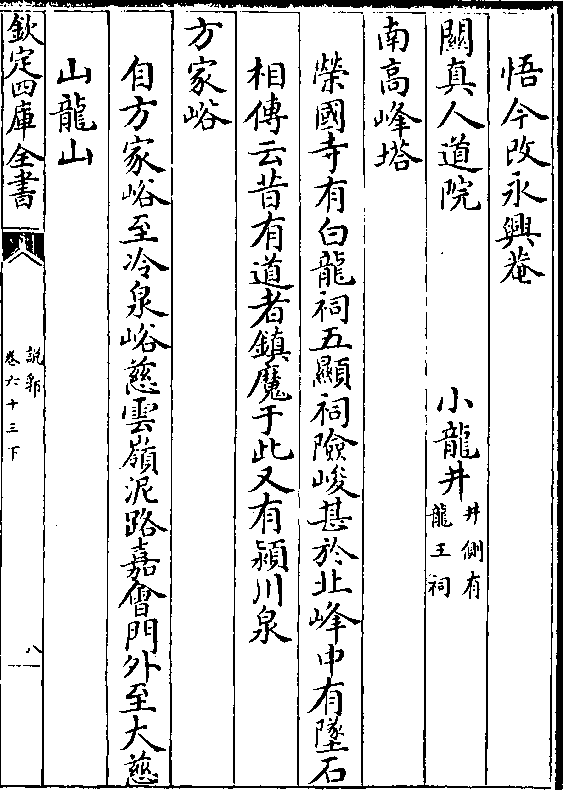 悟今改永興菴
關真人道院　小龍井井側有龍王祠
南高峰塔
榮國寺有白龍祠五顯祠險峻甚於北峰中有墜石
相傳云昔有道者鎮魔于此又有潁川泉
方家峪
自方家峪至冷泉峪慈雲嶺泥路嘉會門外至大慈
山龍山
欽定四庫全書
說郛
卷六十三下
八